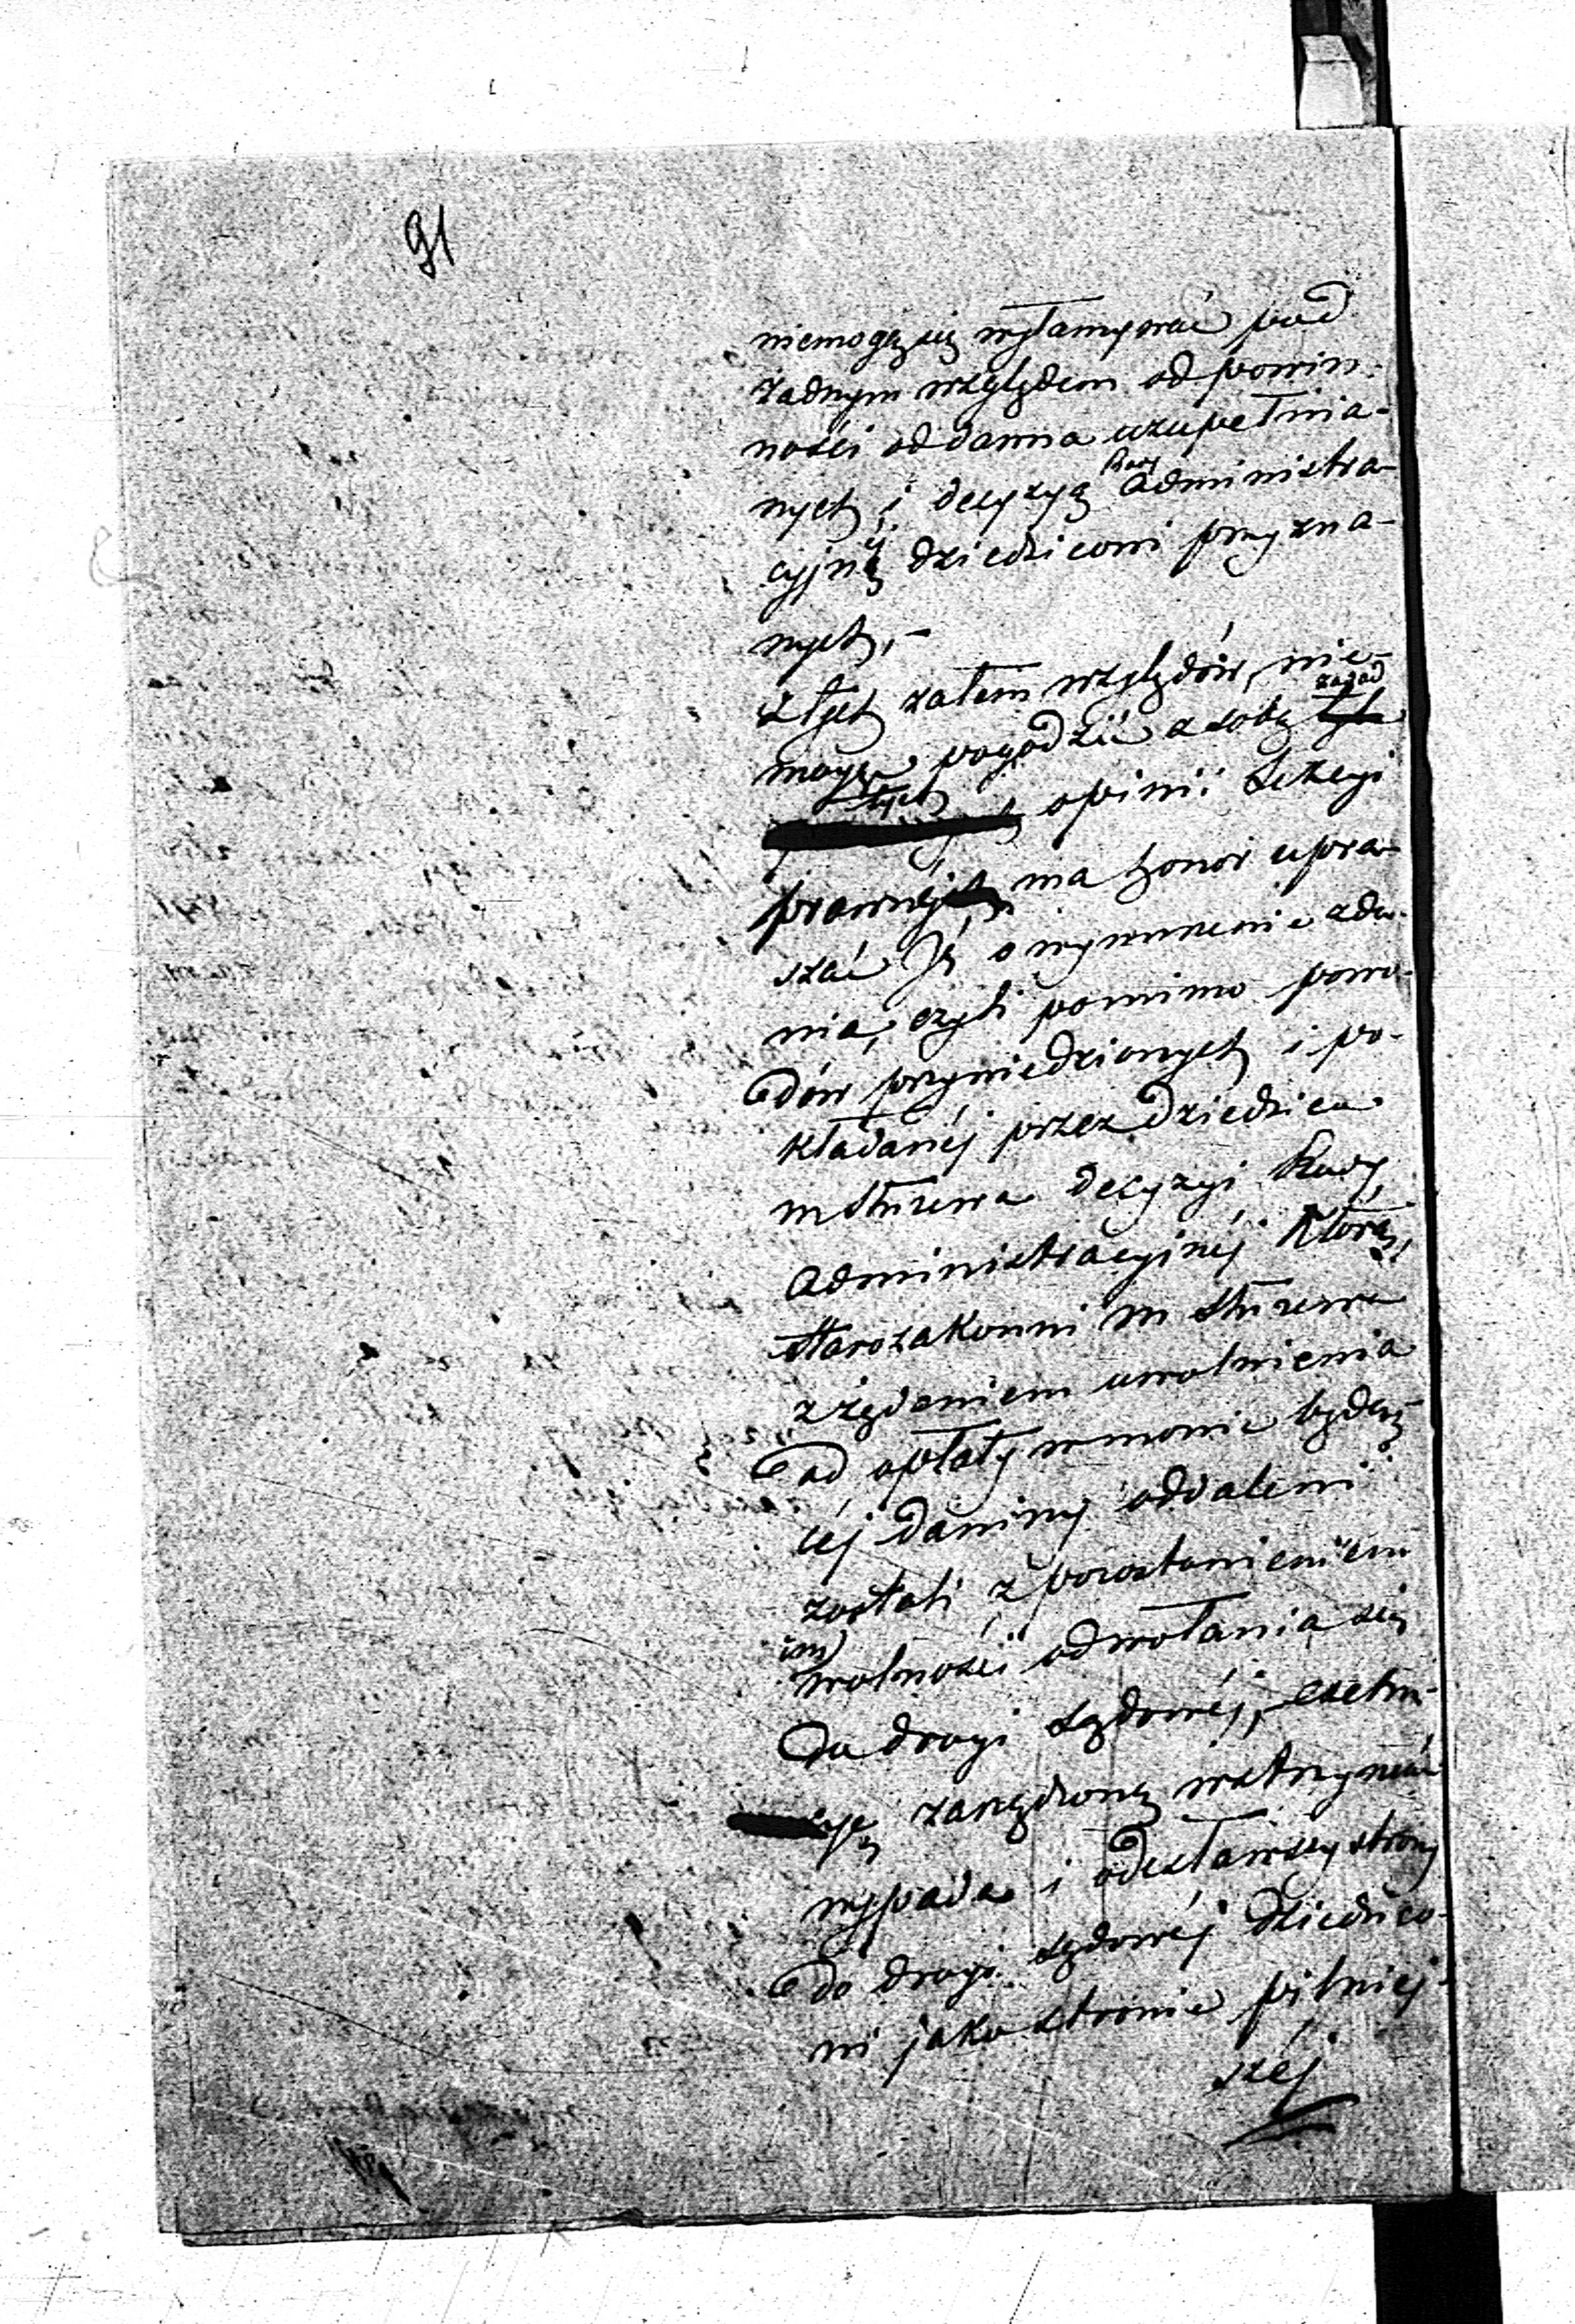 91
niemogą się wyłamywać pod
żadnym względem od powin-
ności oddania uzupełnia-
nych, i decyzyą Rady Administra-
cyjnéj dziedzicowi przyzna-
nych,-
Z tych zatem względów, nie-
mogąc pogodzić z sobą zasad
tych opinii Sekcyi
prawnéj, ma honor upra-
szać Ją o wynurzenie zda-
nia, czyli pomimo powo-
dów przywiedzionych i po-
kładanéj przez dziedzica
m Służewa decyzyi Rady
Administracyjnéj którą,
starozakonni m Służewa
z żądaniem uwolnienia
od opłaty w mowie będą-
céj daniny oddaleni
zostali z pozostawieniem
im wolności odwołania się
do drogi sądowéj, exeku-
cyę zarządzoną wstrzymać
wypada i odesławszy strony
do drogi sądowéj dziedzico-
wi jako stronie pilniej-
széj